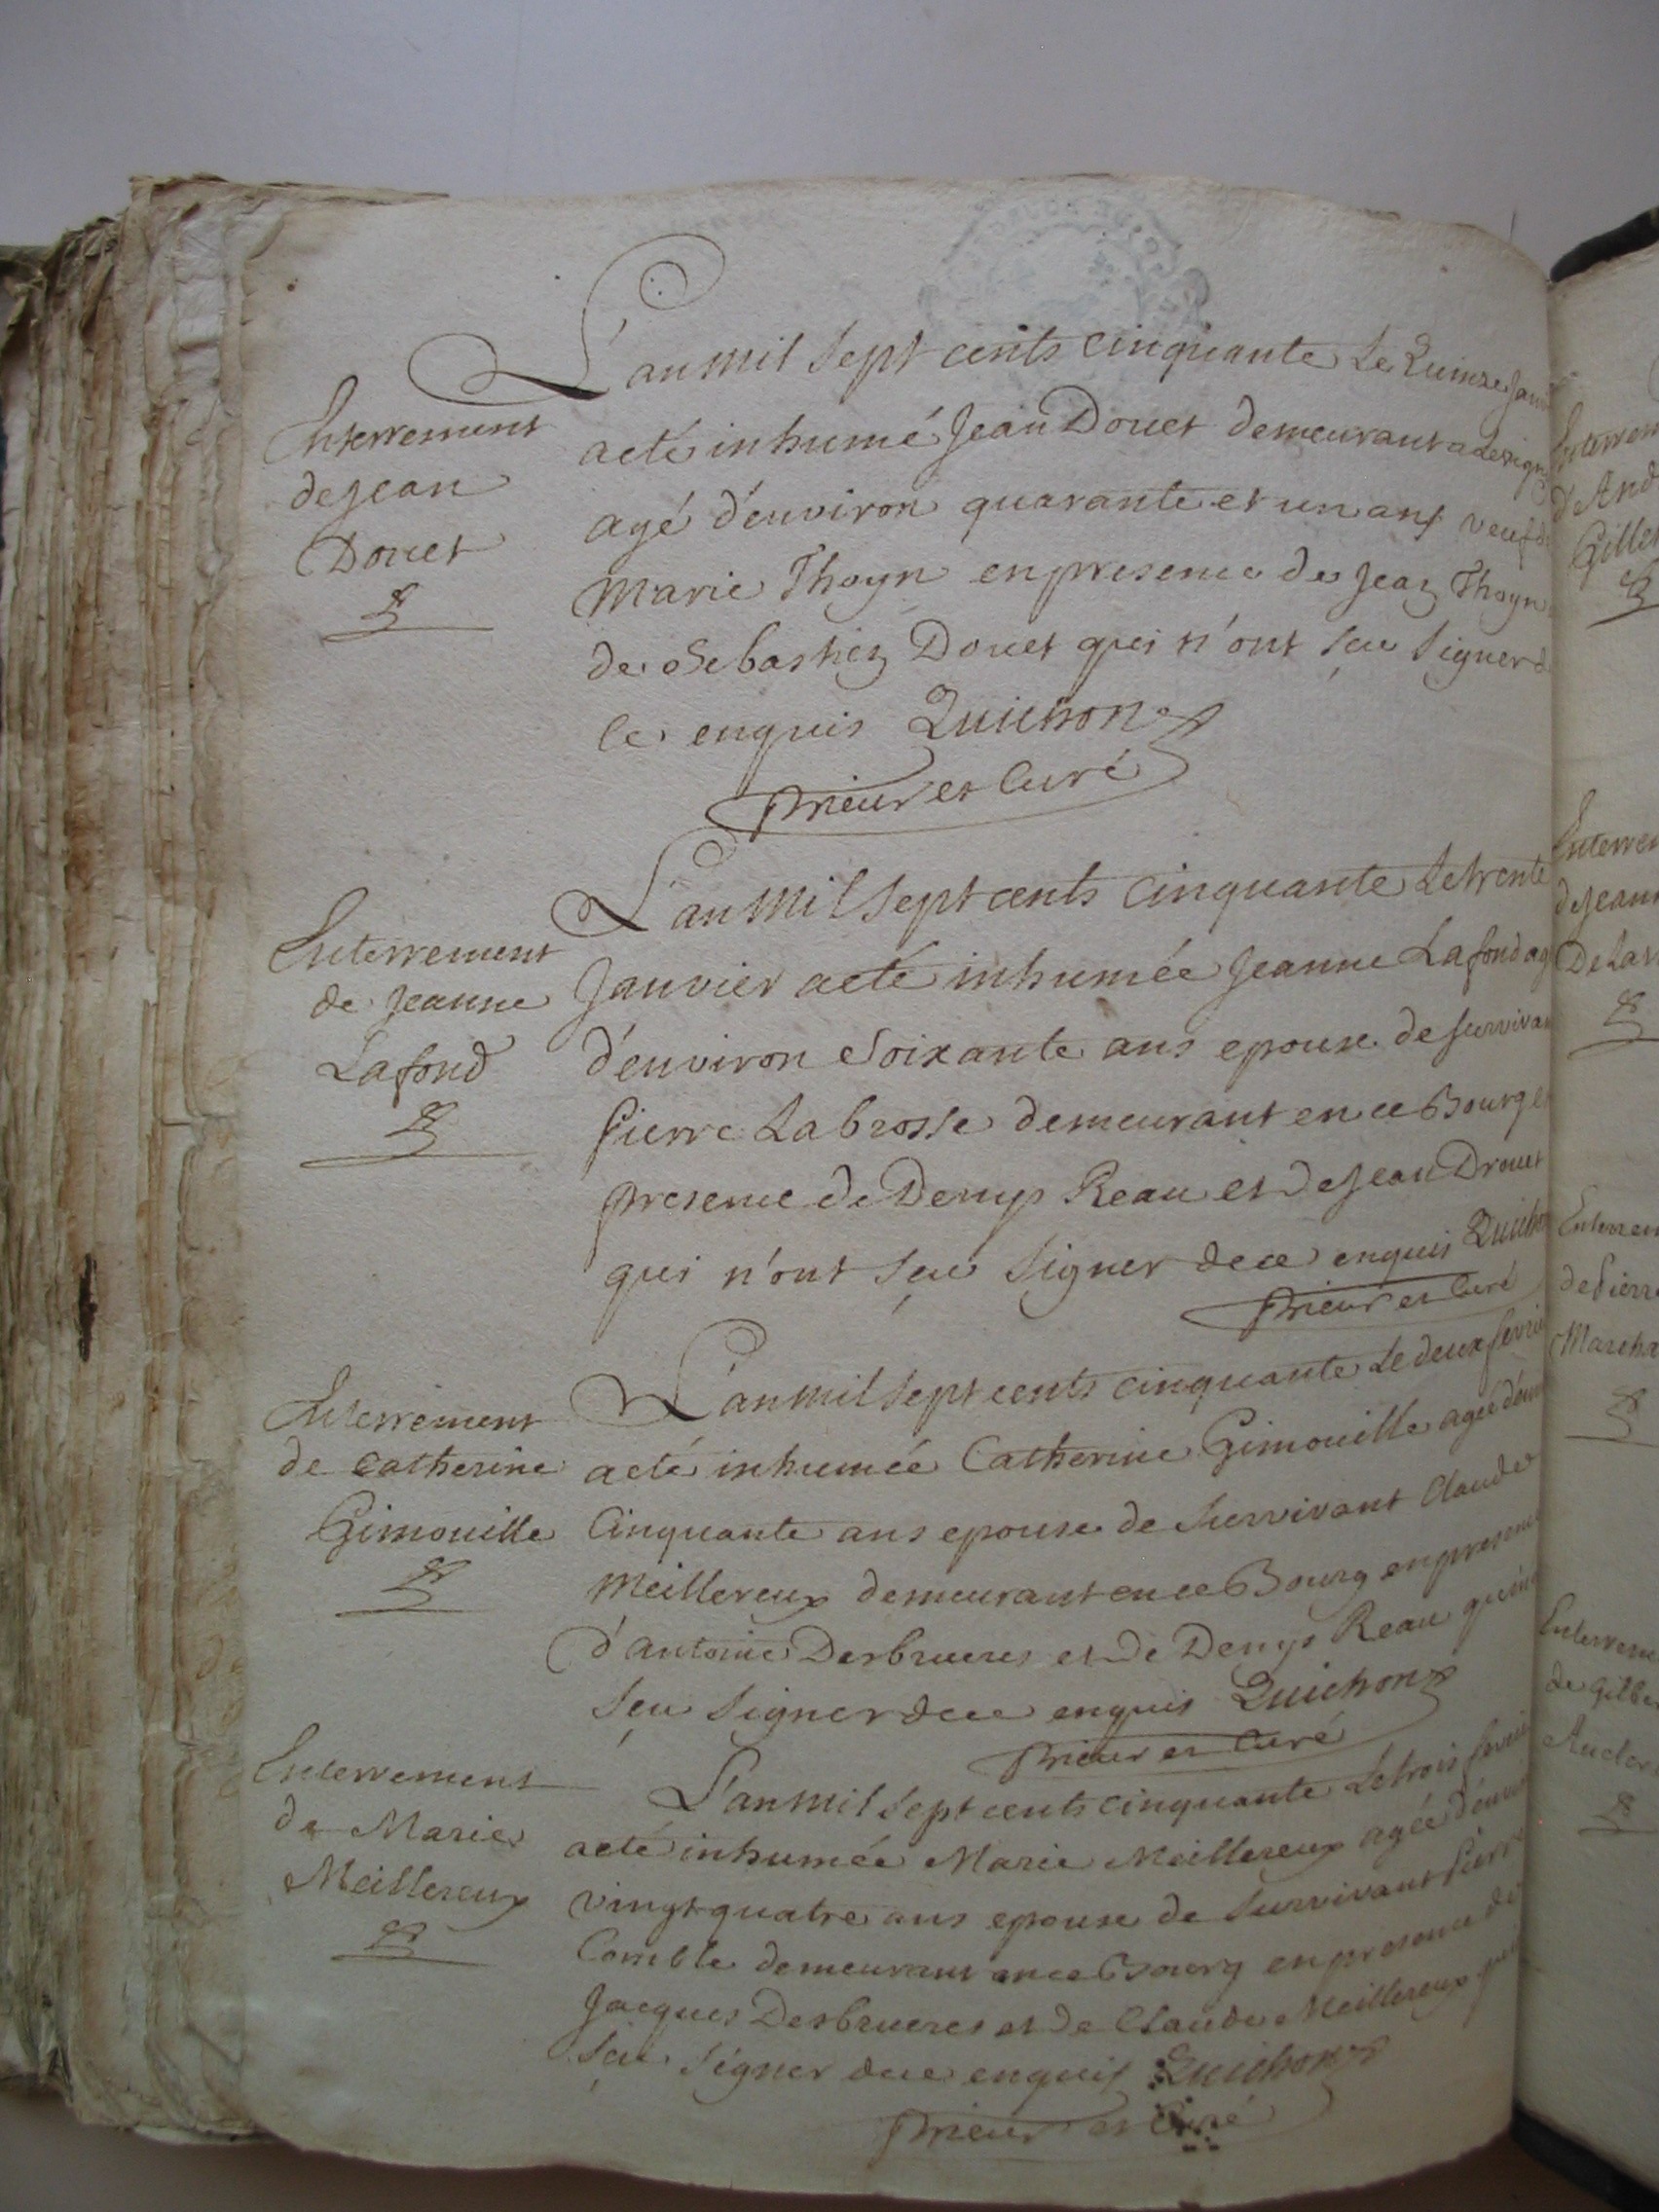 Enterrement
de Jean
Douet
L'an mil sept cents cinquante Le Quinze Jan
a eté inhumé Jean Douet demeurant a
agé d'environ quarante et un ans veuf d
Marie Thoyn en presence de Jean Thoyn
de Sebastien Douet qui n'ont sçu signer d
ce enquis Quichon
Prieur et Curé
Enterrement
de Jeanne
Lafond
L'an mil sept cents cinquante Le trente
Janvier a eté inhumée Jeanne Lafond ag
d'environ Soixante ans epouse de survivan
Pierre Labrosse demeurant en ce Bourg e
presence de Denys Reau et de Jean Drouet
qui n'ont sçu signer de ce enquis Quicho
Prieur et Curé
Enterrement
de Catherine
Gimouille
L'an mil sept cents cinquante Le deux fevri
a eté inhumée Catherine Gimouille agée d'env
Cinquante ans epouse de survivant Claude
Meillereux demeurant en ce Bourg en presence
d'antoine Desbrueres et de Denys Reau qui n'o
sçu signer de ce enquis Quichon
Prieur et Curé
Enterrement
de Marie
Meillereux
L'an mil sept cents cinquante Le trois fevri
a eté inhumée Marie Meillereux agée d'envir
vingt quatre ans epouse de survivant Pierre
Comble demeurant en ce Bourg en presence de
Jacques Desbrueres et de Claude Meillereux
sçu signer de ce enquis Quichon
Prieur et Curé
Enterrem
d'And
Gillet
Enterrem
de Jeann
De Lar
Enterrem
de Pierre
Marcha
Enterrem
de Gilber
Aucler